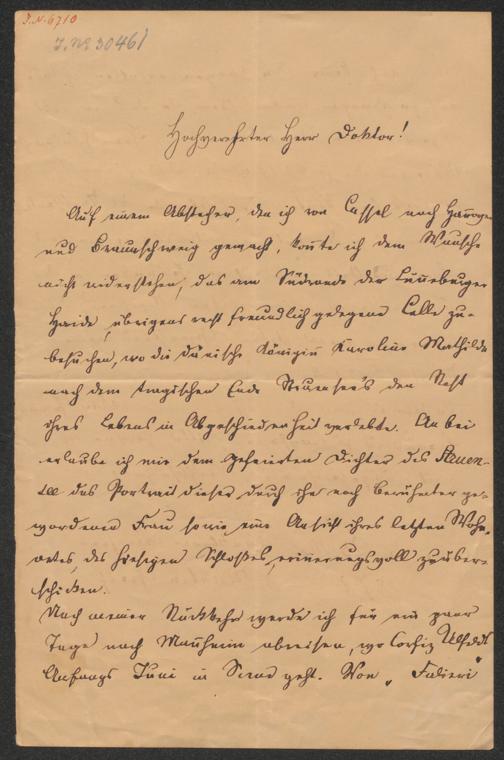 J.N. 6710
J. No 30461
Hochverehrter Herr Doktor!
Auf einem Abstecher, den ich von Cassel nach Hannover
und Braunschweig gemacht, konnte ich dem Wunsche
nicht widerstehen, das am Südrande der Lüneburger
Haide, übrigens recht freundlich gelegene Celle zu-
besuchen, wo die dänische Königin Karoline Mathilde
nach dem tragischen Ende Struensee's den Rest
ihres Lebens in Abgeschiedenheit verlebte. Anbei
erlaube ich mir dem gefeierten Dichter des Struen-
see das Portrait dieser durch ihn noch berühmter ge-
wordenen Frau sowie eine Ansicht ihres letzten Wohn-
ortes, des hiesigen Schloßes, erinnerungsvoll zu über-
schicken.
Nach meiner Rückkehr werde ich für ein paar
Tage nach Manheim abreisen, wo Corfiz Ulfeldt
Anfangs Juni in Scene geht. Von „Falieri"